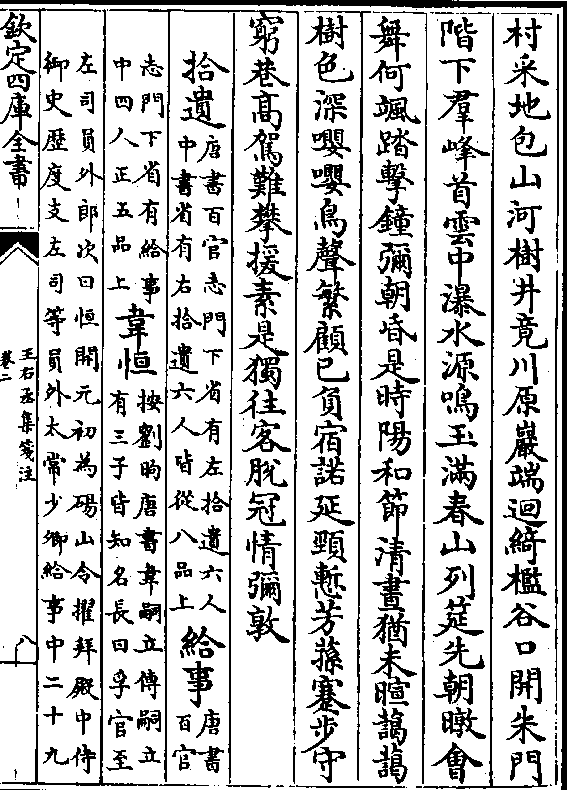 村采地包山河樹井竟川原巖端迴綺檻谷口開朱門
階下羣峰首雲中瀑水源鳴玉滿春山列筵先朝暾會
舞何颯踏擊鐘彌朝昏是時陽和節清晝猶未暄藹藹
樹色深嚶嚶鳥聲繁顧已負宿諾延頸慙芳蓀蹇步守
窮巷高駕難攀援素是獨往客脫冠情彌敦
拾遺唐書百官志門下省有左拾遺六人
中書省有右拾遺六人皆從八品上給事唐書
百官
志門下省有給事
中四人正五品上韋恒按劉昫唐書韋嗣立傳嗣立
有三子皆知名長曰孚官至
左司員外郎次曰恒開元初為碭山令擢拜殿中侍
御史歴度支左司等員外太常少卿給事中二十九
欽定四庫全書
王右丞集箋注
卷二
八